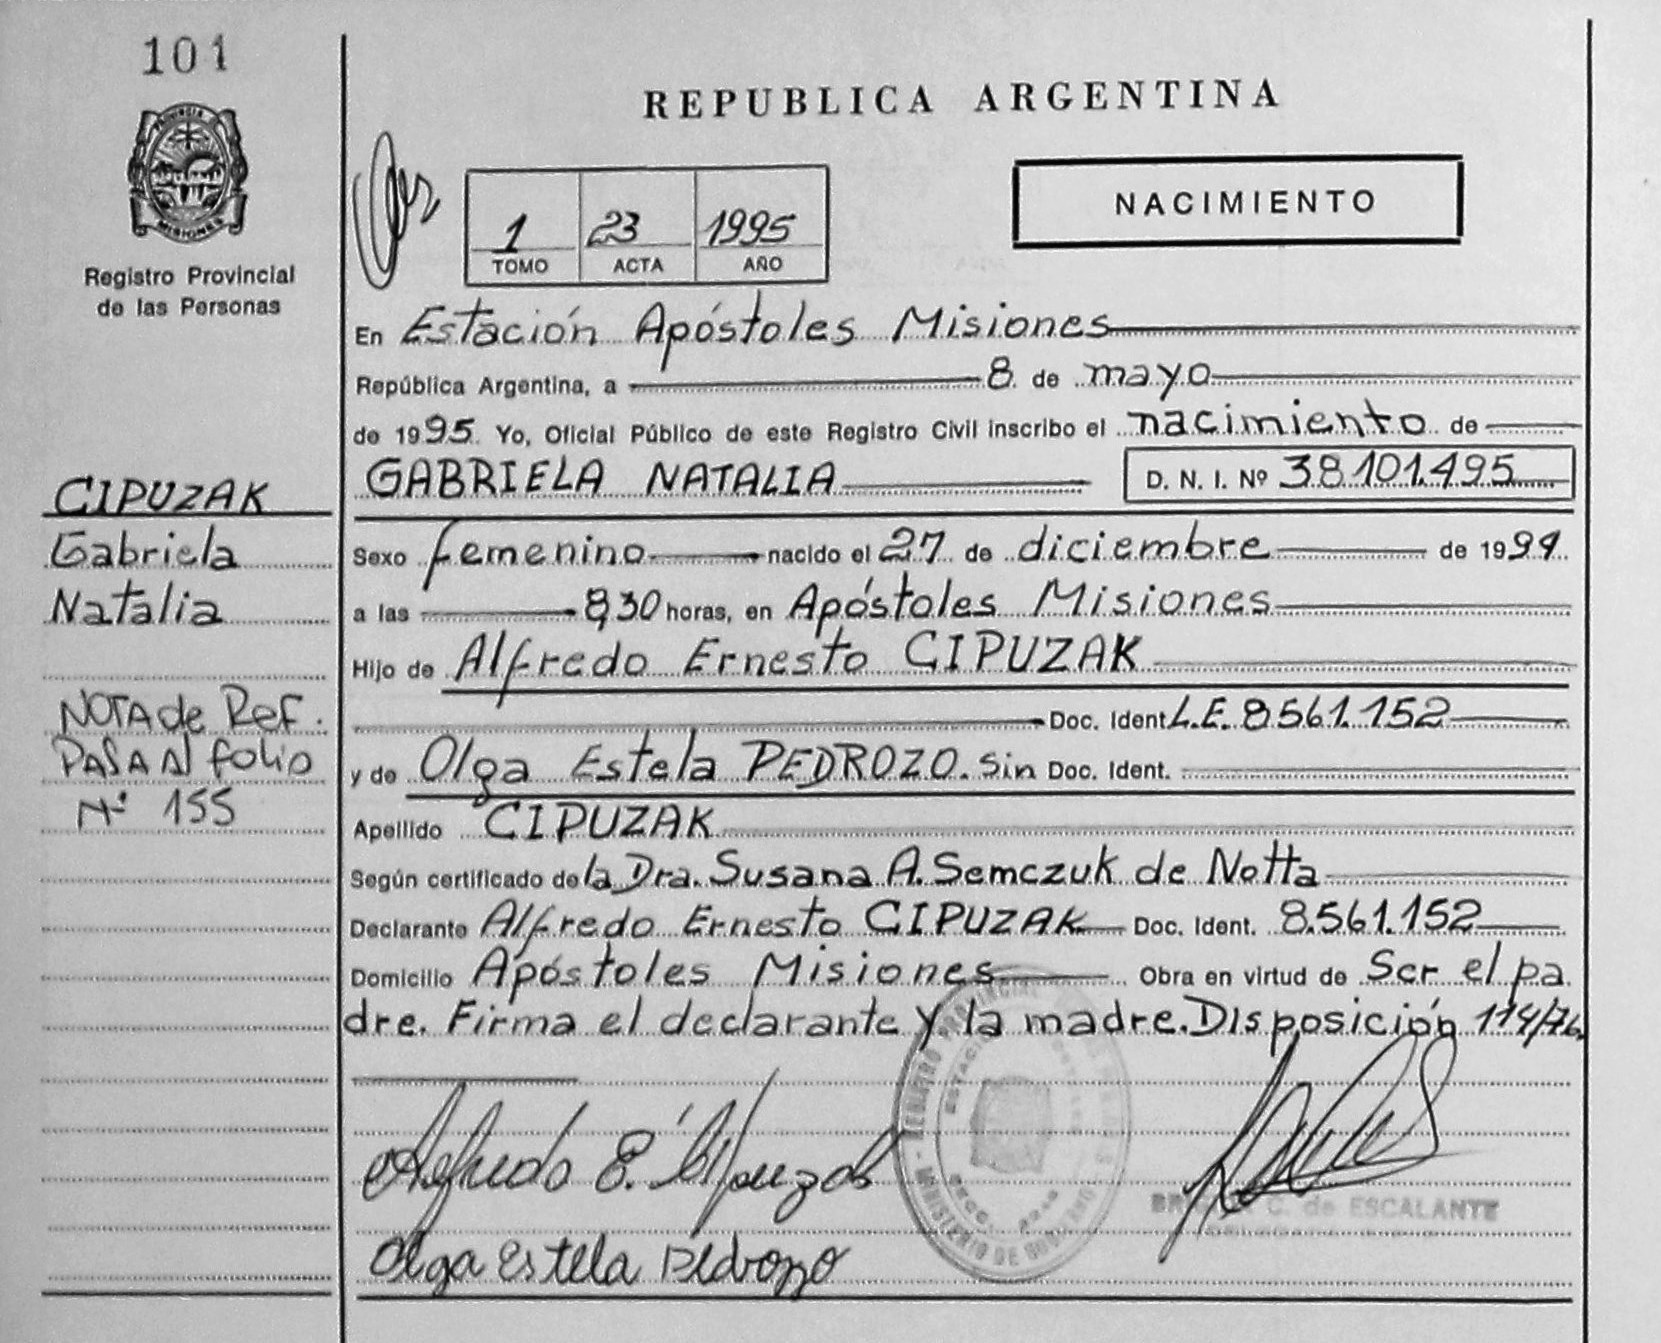 101
PROVINCIA DE
MISIONES
Registro Provincial
de las Personas
CIPUZAK
Gabriela
Natalia
NOTA de Ref.
PASA Al folio
Nº 155
REPUBLICA ARGENTINA
1 23 1995
TOMO ACTA AÑO
NACIMIENTO
En Estación Apóstoles Misiones
República Argentina, a 8 de mayo
de 1995 Yo, Oficial Público de este Registro Civil inscribo el nacimiento de
GABRIELA NATALIA D. N. I. Nº 38.101.495
Sexo femenino nacido el 27 de diciembre de 1994
a las 8,30 horas, en Apóstoles Misiones
Hijo de Alfredo Ernesto CIPUZAK
Doc. Ident. L.E. 8561.152
y de Olga Estela PEDROZO. Sin Doc. Ident.
Apellido CIPUZAK
Según certificado de la Dra. Susana A. Semczuk de Notta
Declarante Alfredo Ernesto CIPUZAK Doc. Ident. 8.561.152
Domicilio Apóstoles Misiones Obra en virtud de Ser el pa
dre. Firma el declarante y la madre. Disposición 114/76.
Alfredo E. Cipuzak
MINISTERIO DE GOBIERNO
C. de ESCALANTE
Olga Estela Pedrozo